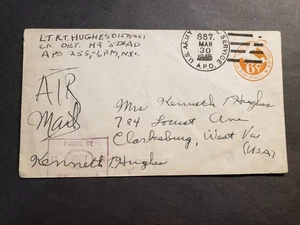 LT. K.T. HUGHES
APO 255, % PM, N.Y.C.
U.S. ARMY POSTAL SERVICE
887.
MAR
30
A.P.O.
6¢
AIR
Mail
Mrs Kenneth T Hughes
784 Locust Ave
Clarksburg, West Va
(USA)
PASSED BY
Kenneth T Hughes